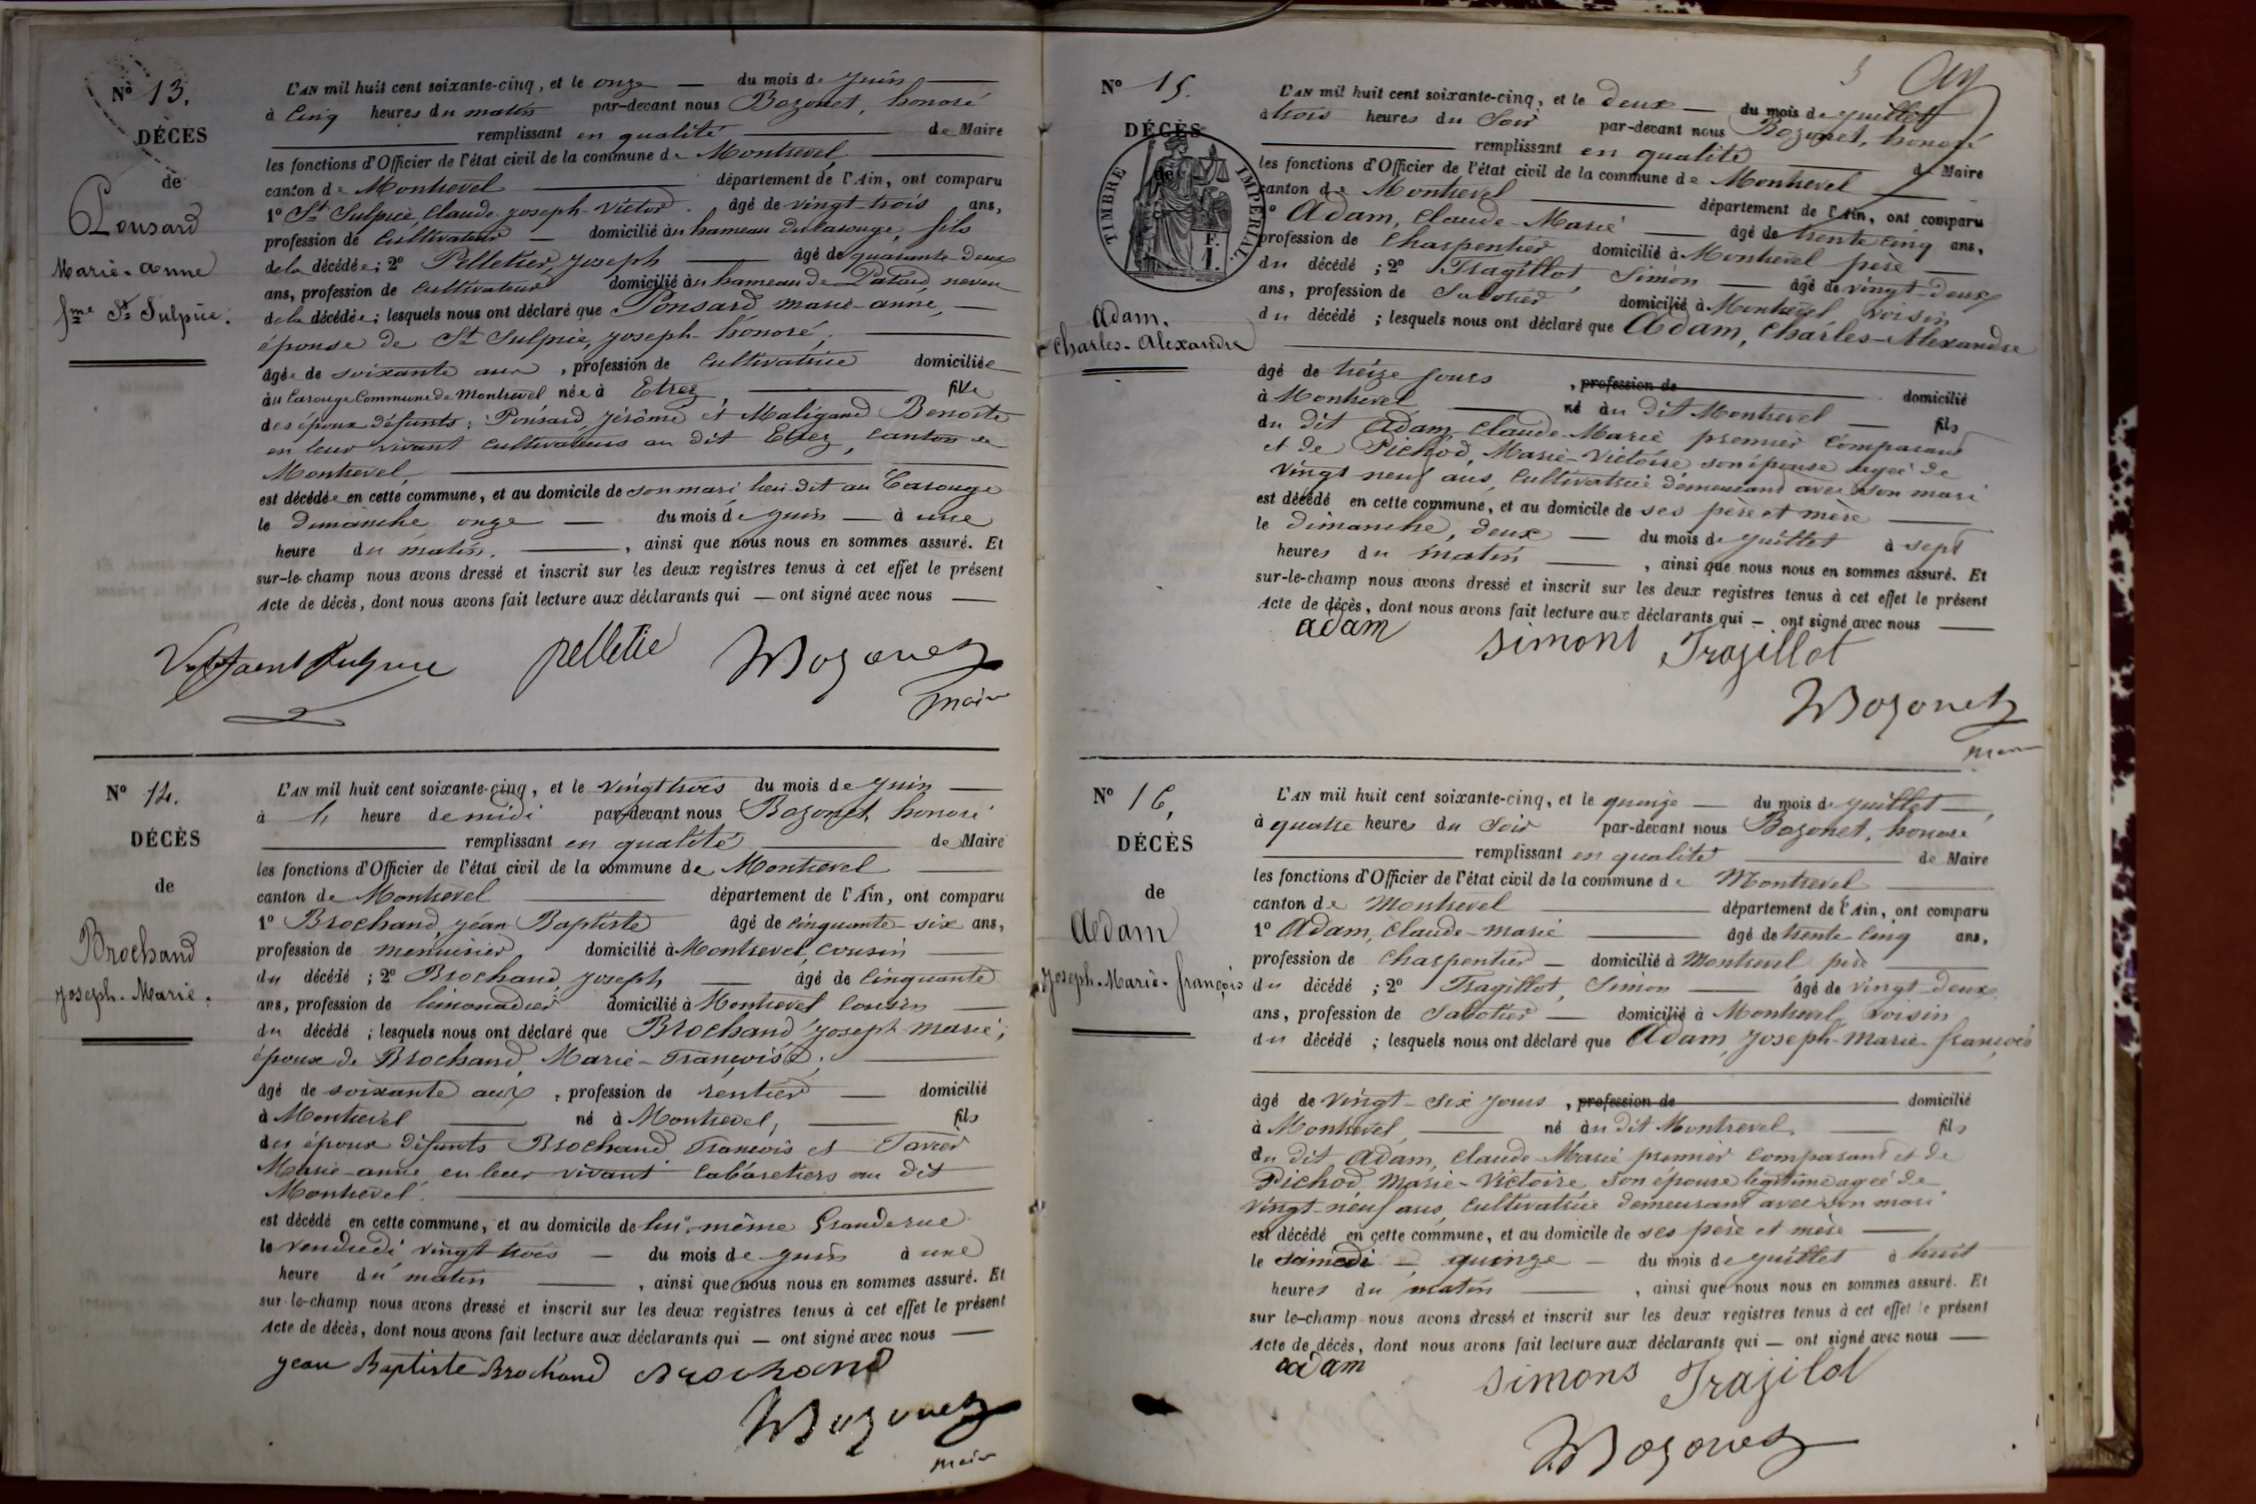 Nº 13.
DÉCÈS
de
Ponsard
Marie-anne
fme St Sulpice.
L'AN mil huit cent soixante-cinq, et le onze — du mois de juin —
à cinq heures du matin par-devant nous Bozonet, honoré
remplissant en qualité — de Maire
les fonctions d'Officier de l'état civil de la commune de Montrevel
canton de Montrevel — département de l'Ain, ont comparu
1º St Sulpice, Claude-joseph-Victor. âgé de vingt-trois ans,
profession de cultivateur — domicilié au hameau du Carouge, fils
de la décédée; 2º Pelletier, joseph — âgé de quarante-deux
ans, profession de cultivateur domicilié au hameau de neveu
de la décédée; lesquels nous ont déclaré que Ponsard, marie-anne, —
épouse de St Sulpice, joseph-honoré,
âgée de soixante ans, profession de cultivatrice domiciliée
au Carouge Commune de Montrevel née à Etrez, — fille
des époux défunts: Ponsard, jérôme et Maligand Benoite
en leur vivant cultivateurs au dit Etrez, canton de
Montrevel,
est décédée en cette commune, et au domicile de son mari lieu dit au Carouge
le dimanche onze — du mois de juin — à une
heure du matin. — , ainsi que nous nous en sommes assuré. Et
sur-le-champ nous avons dressé et inscrit sur les deux registres tenus à cet effet le présent
Acte de décès, dont nous avons fait lecture aux déclarants qui — ont signé avec nous —
pelletié Bozonet
maire
Nº 14.
DÉCÈS
de
Brochand
joseph-Marie.
L'AN mil huit cent soixante-cinq, et le vingt trois du mois de juin —
à 1, heure de midi par-devant nous Bozonet, honoré
remplissant en qualité — de Maire
les fonctions d'Officier de l'état civil de la commune de Montrevel
canton de Montrevel — département de l'Ain, ont comparu
1º Brochand, jean Baptiste âgé de cinquante-six ans,
profession de menuisier domicilié à Montrevel, cousin
du décédé; 2º Brochand, joseph — âgé de cinquante
ans, profession de limonadier domicilié à Montrevel cousin
du décédé; lesquels nous ont déclaré que Brochand, joseph-marie,
époux de Brochand, Marie-françoise,
âgé de soixante ans, profession de rentier — domicilié
à Montrevel — né à Montrevel, — fils
des époux défunts Brochand françois et
Marie-anne, en leur vivant cabaretiers au dit
Montrevel.
est décédé en cette commune, et au domicile de lui-même Grande rue
le vendredi vingt trois — du mois de juin à une
heure du matin — , ainsi que nous nous en sommes assuré. Et
sur-le-champ nous avons dressé et inscrit sur les deux registres tenus à cet effet le présent
Acte de décès, dont nous avons fait lecture aux déclarants qui — ont signé avec nous —
jean Baptiste Brochand Brochand
Bozonet
maire
Nº 15.
DÉCÈS
de
TIMBRE IMPÉRIAL.
F.
1.
Adam,
Charles-Alexandre
L'AN mil huit cent soixante-cinq, et le deux — du mois de juillet
à trois heures du Soir par-devant nous Bozonet, honoré
remplissant en qualité de Maire
les fonctions d'Officier de l'état civil de la commune de Montrevel
canton de Montrevel — département de l'Ain, ont comparu
1º Adam, Claude-Marie — âgé de trente cinq ans,
profession de Charpentier domicilié à Montrevel père —
du décédé; 2º Tragillot, Simon — âgé de vingt-deux
ans, profession de Sabotier domicilié à Montrevel voisin
du décédé; lesquels nous ont déclaré que Adam, Charles-Alexandre
âgé de treize jours, profession de domicilié
à Montrevel — né au dit Montrevel — fils
du dit Adam, Claude-Marie premier comparant
et de Pichod, Marie-Victoire son épouse agée de
vingt neuf ans, cultivatrice demeurant avec son mari
est décédé en cette commune, et au domicile de ses père et mère —
le dimanche, deux — du mois de juillet à sept
heures du matin — , ainsi que nous nous en sommes assuré. Et
sur-le-champ nous avons dressé et inscrit sur les deux registres tenus à cet effet le présent
Acte de décès, dont nous avons fait lecture aux déclarants qui — ont signé avec nous —
adam simont Tragillot
Bozonet
maire
Nº 16,
DÉCÈS
de
Adam
Joseph-Marie-françois
L'AN mil huit cent soixante-cinq, et le quinze — du mois de juillet —,
à quatre heures du Soir par-devant nous Bozonet, honoré
remplissant en qualité — de Maire
les fonctions d'Officier de l'état civil de la commune de Montrevel
canton de Montrevel — département de l'Ain, ont comparu
1º Adam, Claude-marie — âgé de trente cinq ans,
profession de Charpentier — domicilié à Montrevel père
du décédé; 2º Tragillot, Simon — âgé de vingt deux
ans, profession de Sabotier — domicilié à Montrevel, voisin
du décédé; lesquels nous ont déclaré que Adam, joseph-marie françois
âgé de vingt-six jours, profession de domicilié
à Montrevel, — né au dit Montrevel. — fils
du dit Adam, Claude-Marie premier comparant et de
Pichod Marie-Victoire son épouse légitime agée de
vingt-neuf ans, cultivatrice demeurant avec son mari
est décédé en cette commune, et au domicile de ses père et mère —
le samedi — quinze — du mois de juillet à huit
heures du matin — , ainsi que nous nous en sommes assuré. Et
sur le-champ nous avons dressé et inscrit sur les deux registres tenus à cet effet le présent
Acte de décès, dont nous avons fait lecture aux déclarants qui — ont signé avec nous —
adam simons Trazilot
Bozonet